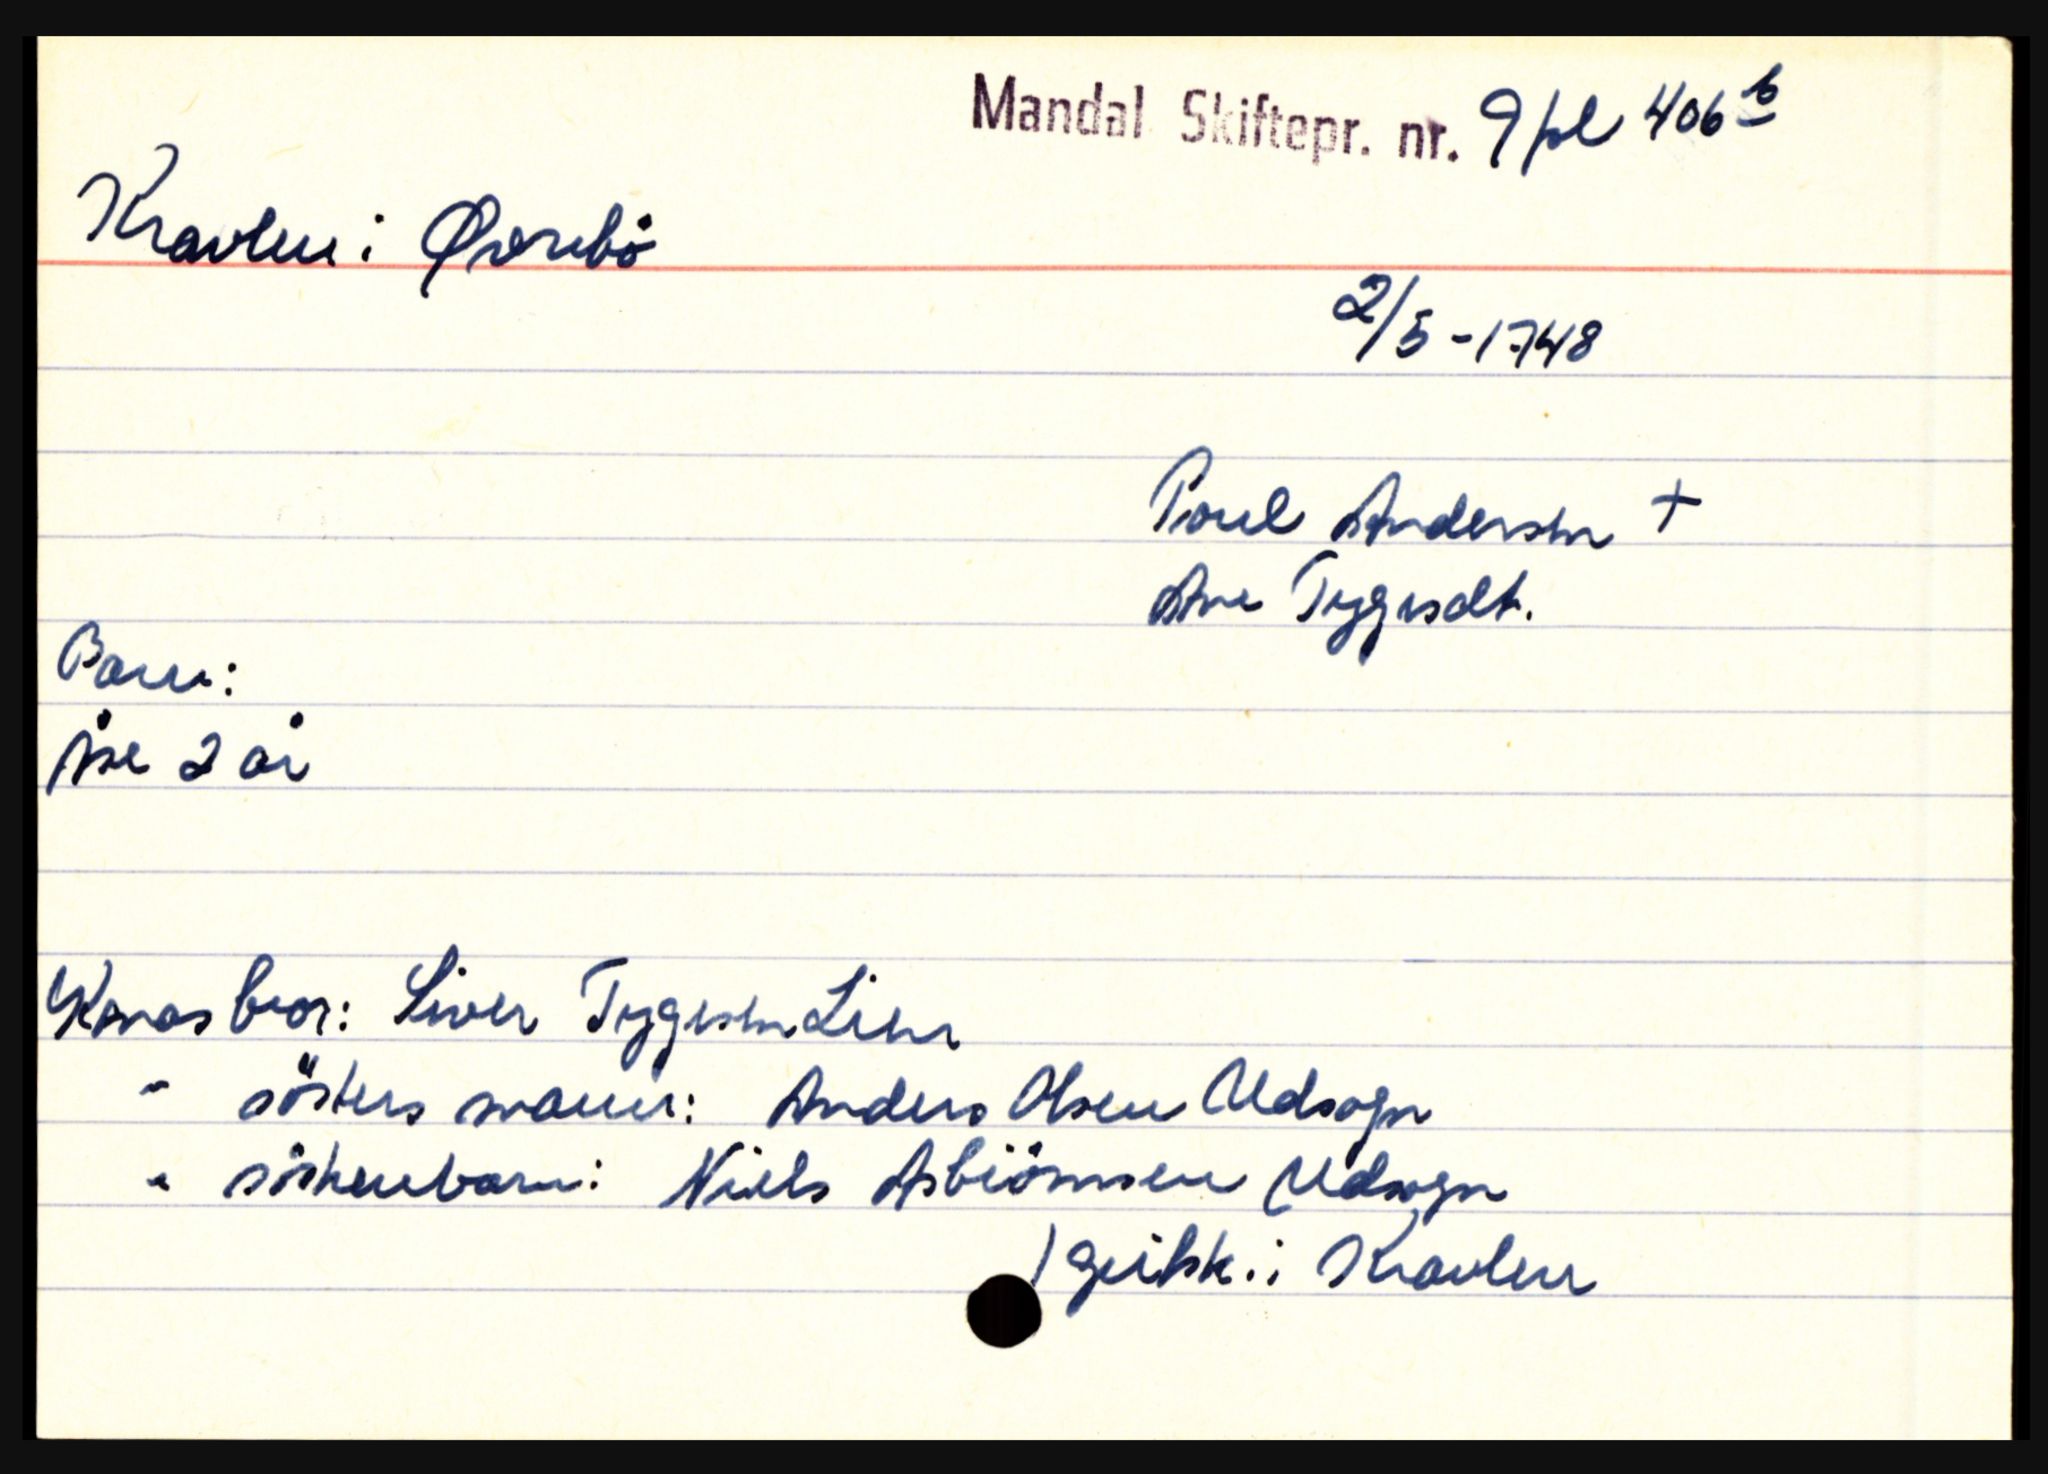 Mandal Skiftepr. nr. 9 fol 406 b
Kravlen i Øvrebö
2/5 - 1748
Poul Andersen +
Ane Tygesdt.
Barn:
Åse 2 år
Konas bror: Siver Tygesen Lien
" sösters mann: Anders Olsen Udsogn
" söskenbarn: Niels Asbiörnsen Udsogn
/ i Kravlen